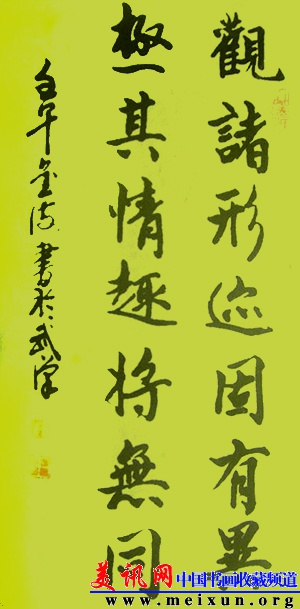 觀諸形迹固有異
極其情趣將無同
壬午 書於武漢
美讯网 中国书画收藏频道
www.meixun.org